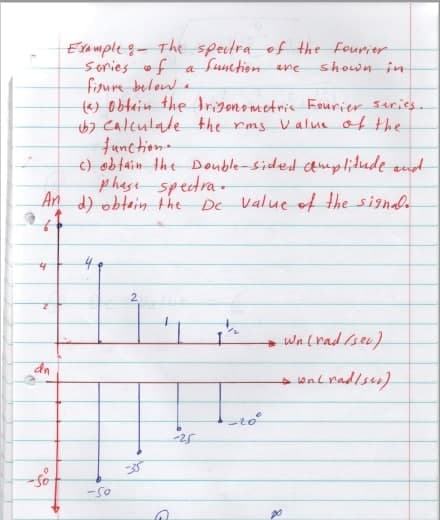 Example 8- The spectra of the Fourier
series of a function are shown in
figure below.
(a) Obtain the Trigonometric Fourier series.
(b) Calculate the rms value of the
function.
c) obtain the Double-sided amplitude and
phase spectra.
d) obtain the DC value of the signal.
An
6
4
4
2
2
1
1/2
wn (rad/sec)
dn
wn (rad/sec)
-20°
-25
-35
-50°
-50